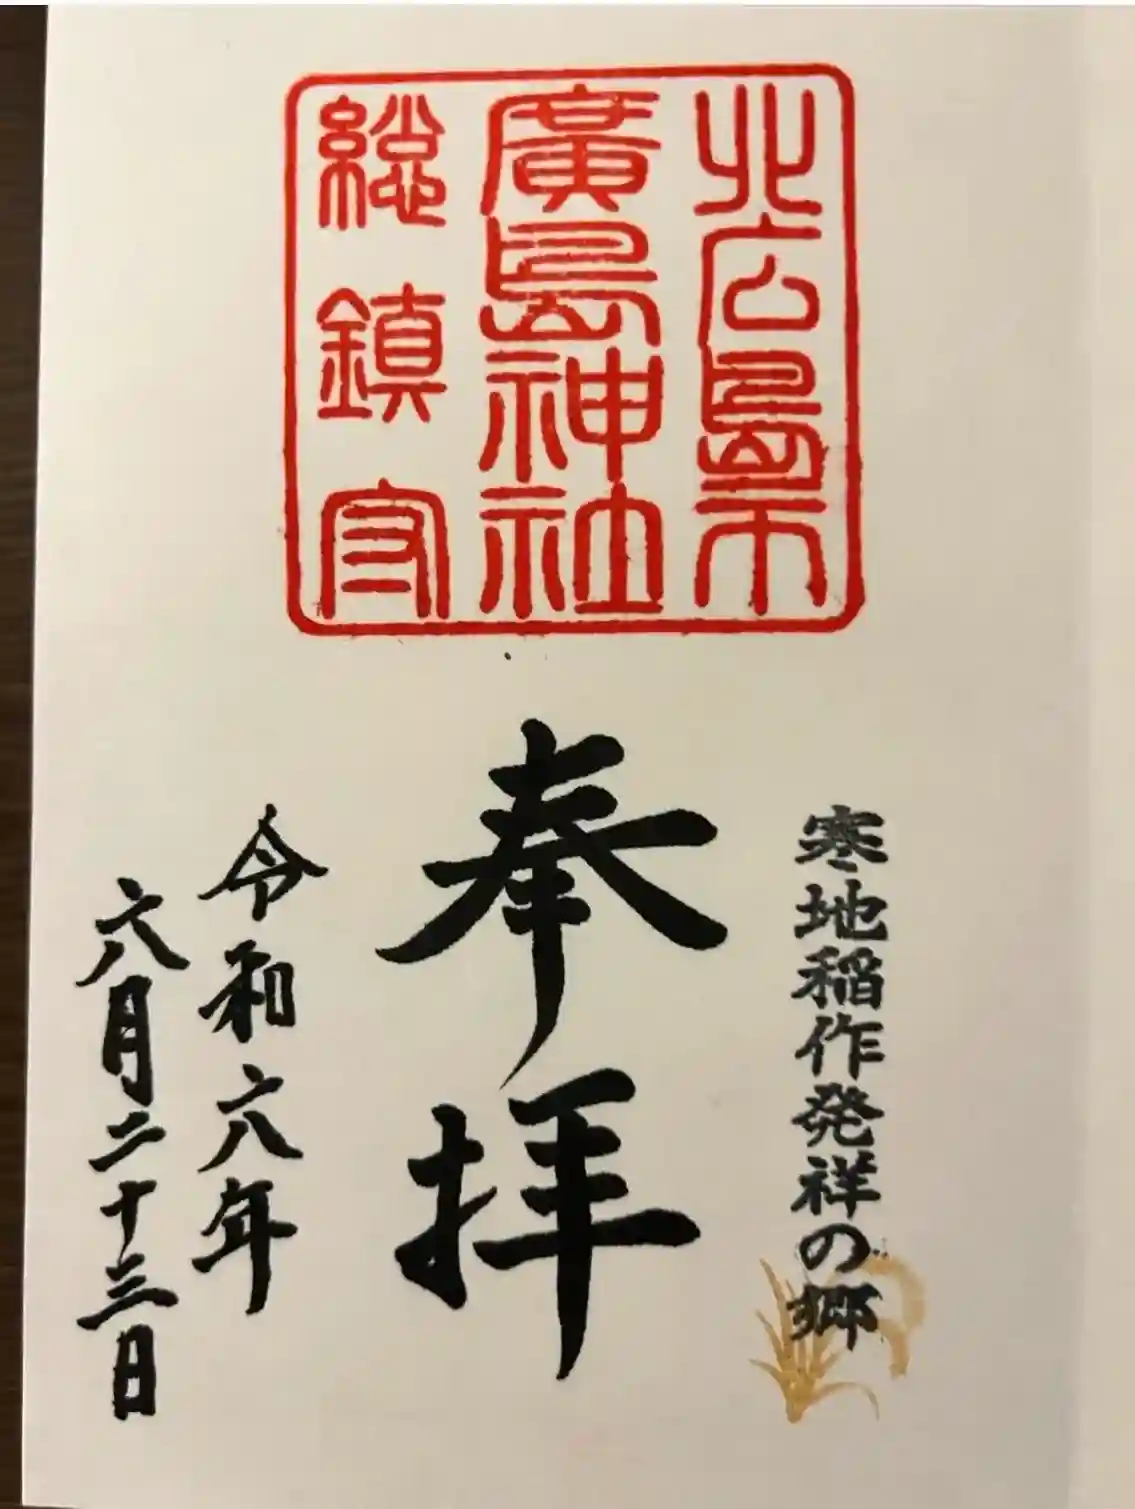 北広島市
廣島神社
総鎮守
寒地稲作発祥の郷
奉拝
令和六年
六月二十三日